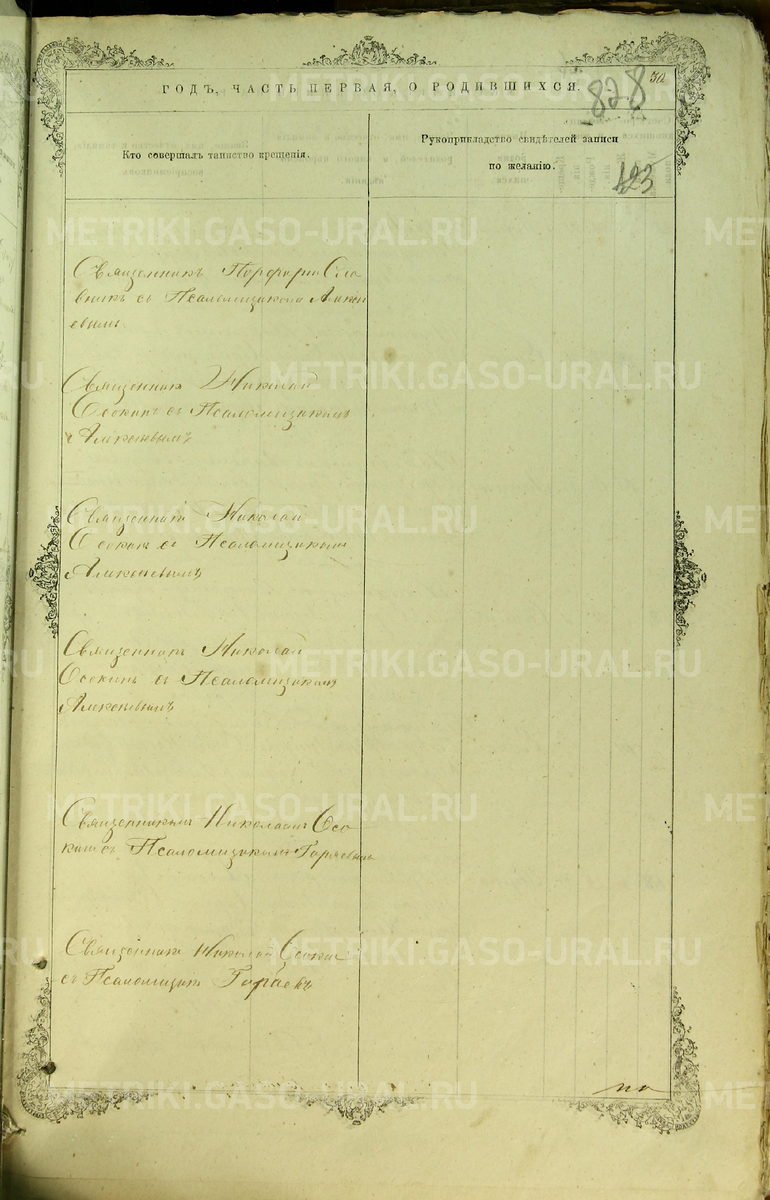 ГОДЪ, ЧАСТЬ ПЕРВАЯ, О РОДИВШИХСЯ.
828
32
Кто совершалъ таинство крещенія.
Рукоприкладство свидѣтелей записи
по желанію.
423
METRIKI.GASO-URAL.RU
Священникъ Порфирій Сла
вникъ съ Псаломщикомъ Алексѣ
евымъ.
Священникъ Николай
Осокинъ съ Псаломщикомъ
Алексѣевымъ
Священникъ Николай
Осокинъ съ Псаломщикомъ
Алексѣевымъ
Священникъ Николай
Осокинъ съ Псаломщикомъ
Алексѣевымъ
Священникомъ Николаемъ Осо
кин съ Псаломщикомъ
Священникъ Николай Осокин
съ Псаломщикъ